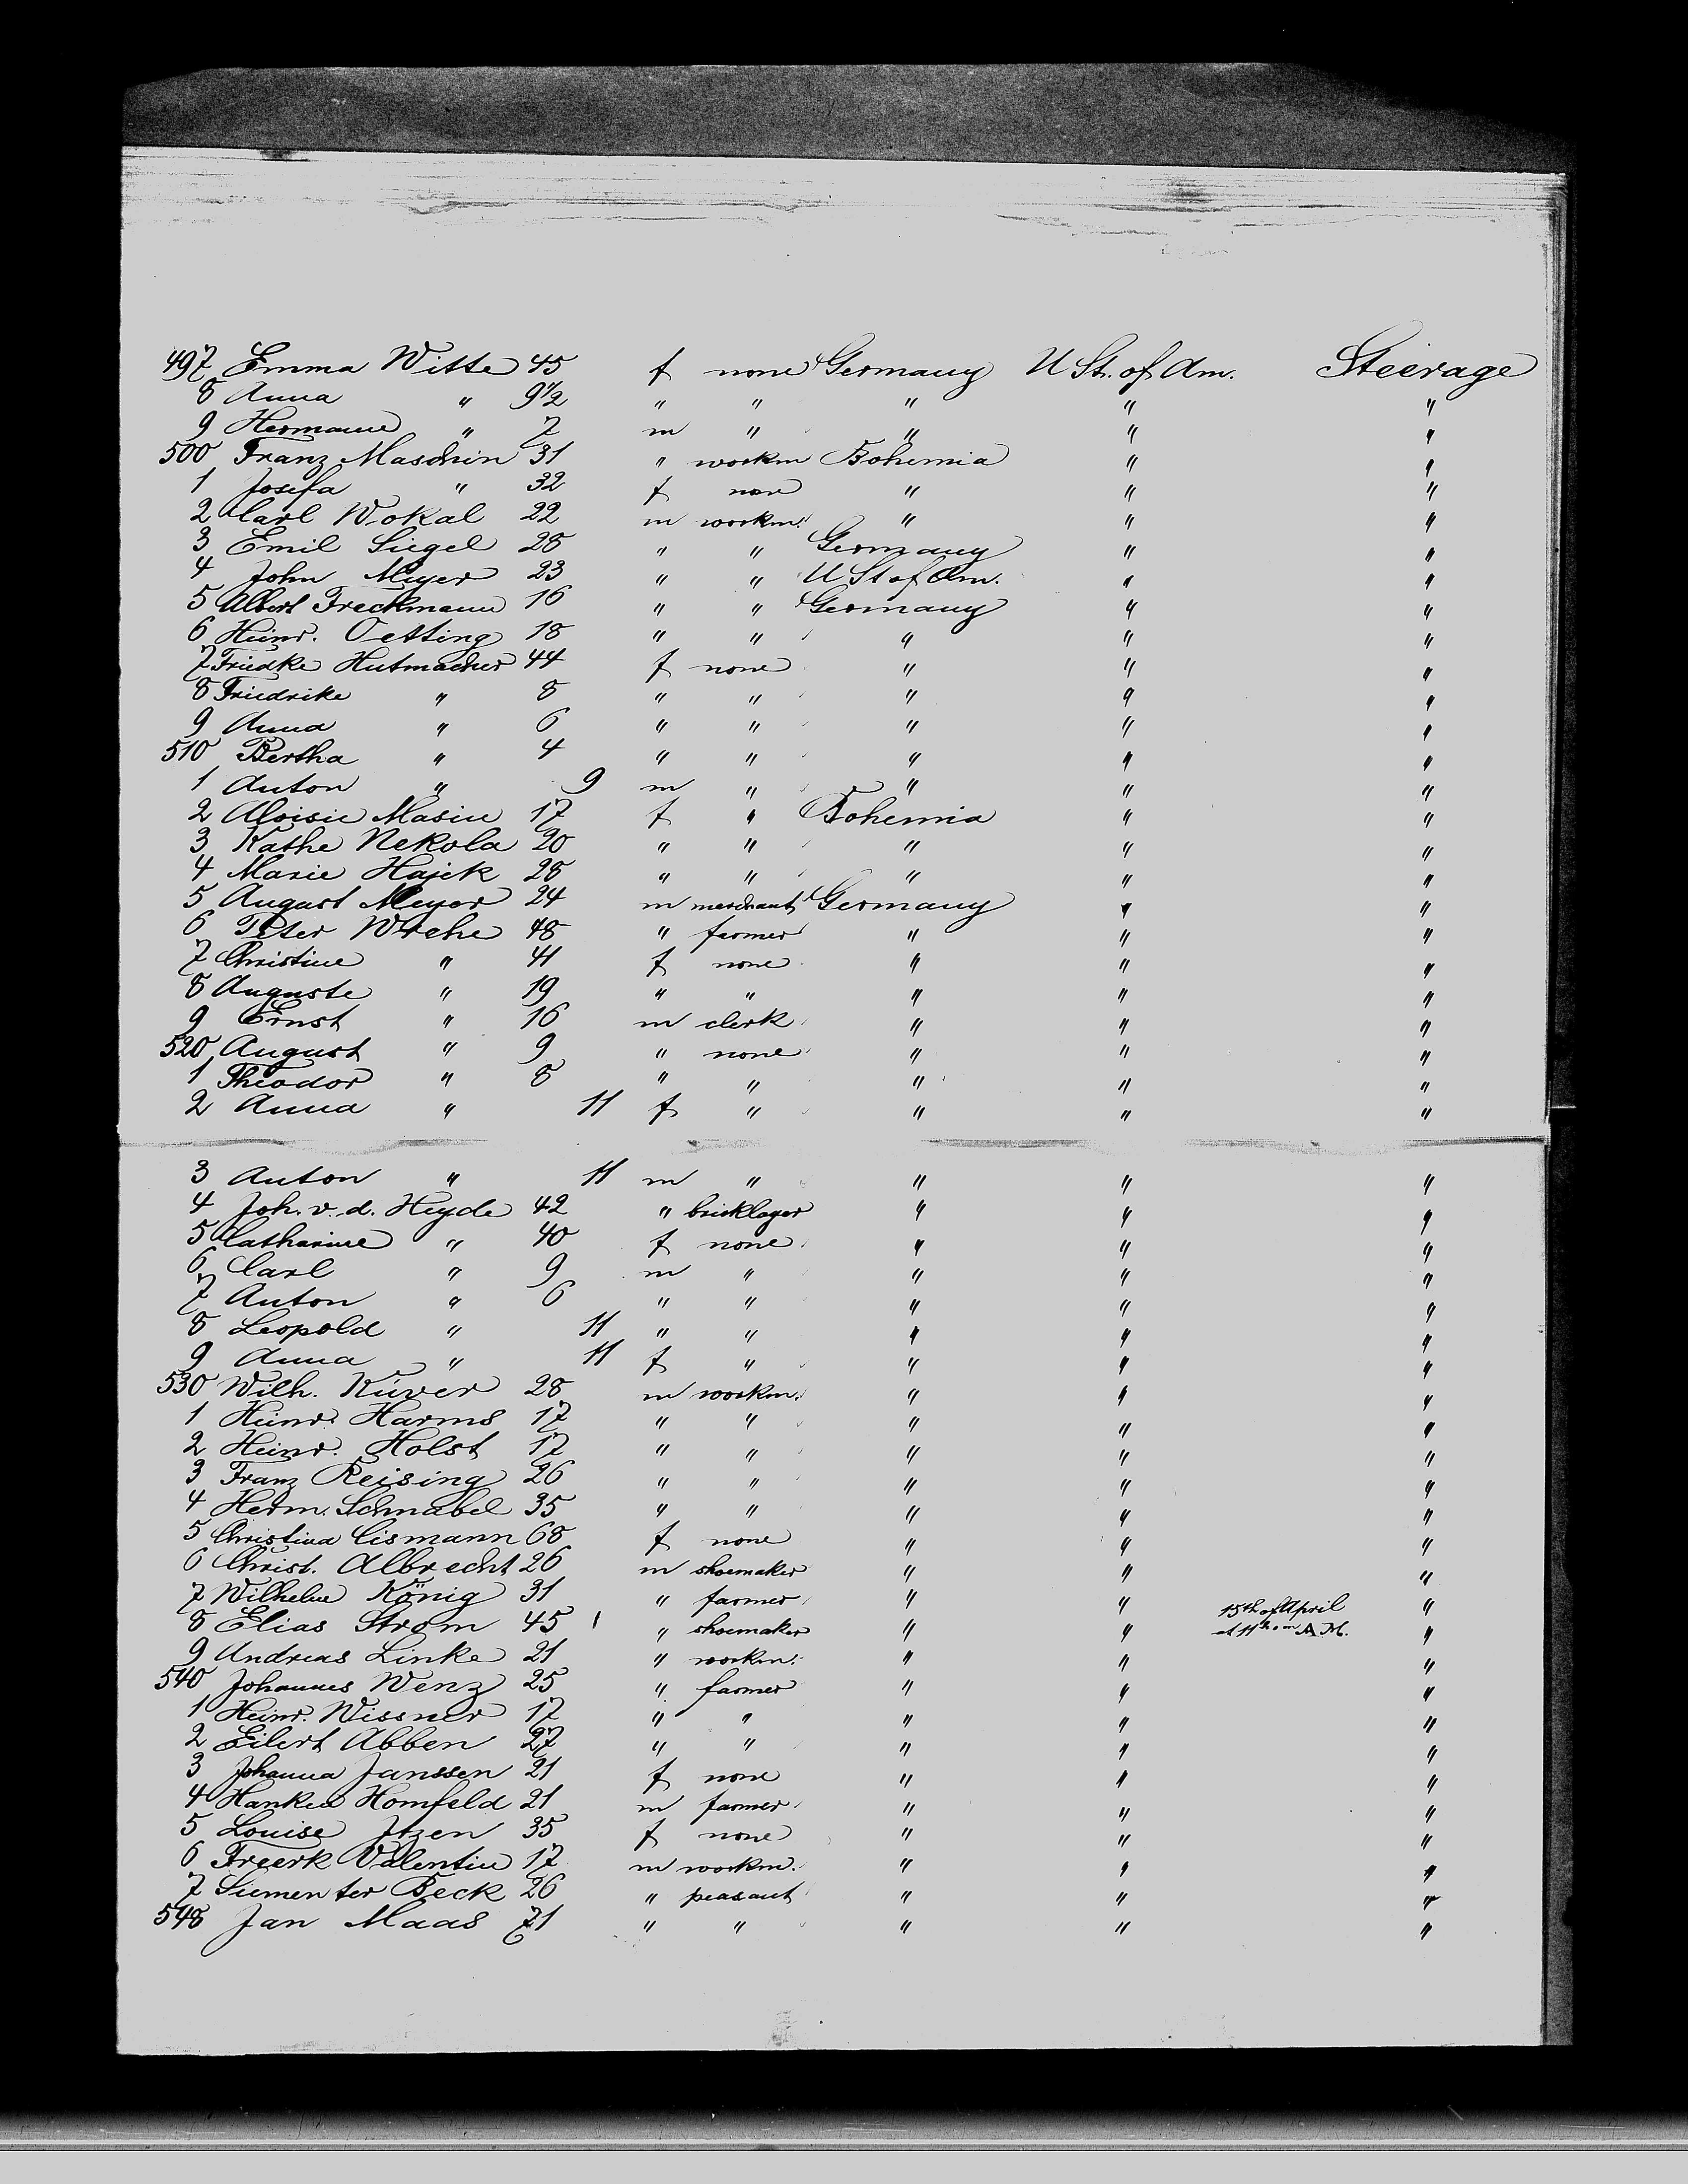 497 Emma Witte 45 f none Germany U St. of Am. Steerage
8 Anna " 9 1/2 " " " " "
9 Hermann " 7 m " " " "
500 Franz Maschin 31 " workm Bohemia " "
1 Josefa " 32 f none " " "
2 Carl Wokal 22 m workm. " " "
3 Emil Siegel 28 " " Germany " "
4 John Meyer 23 " " U St of Am. " "
5 Albert Freckmann 16 " " Germany " "
6 Heinr. Oetting 18 " " " " "
7 Friedke Hutmacher 44 f none " " "
8 Friedrike " 8 " " " " "
9 Anna " 6 " " " " "
510 Bertha " 4 " " " " "
1 Anton " 9 m " " " "
2 Aloisie Masin 17 f " Bohemia " "
3 Kathe Nekola 20 " " " " "
4 Marie Hajek 28 " " " " "
5 August Meyer 24 m merchant Germany " "
6 Peter Wrehe 48 " farmer " " "
7 Christine " 41 f none " " "
8 Auguste " 19 " " " " "
9 Ernst " 16 m clerk " " "
520 August " 9 " none " " "
1 Theodor " 8 " " " " "
2 Anna " 11 f " " " "
3 Anton " 11 m " " " "
4 Joh. v. d. Heyde 42 " bricklayer " " "
5 Catharine " 40 f none " " "
6 Carl " 9 m " " " "
7 Anton " 6 " " " " "
8 Leopold " 11 " " " " "
9 Anna " 11 f " " " "
530 Wilh. Küver 28 m workm. " " "
1 Heinr. Harms 17 " " " " "
2 Heinr. Holst 17 " " " " "
3 Franz Reising 26 " " " " "
4 Herm. Schnabel 35 " " " " "
5 Christina Cismann 68 f none " " "
6 Christ. Albrecht 26 m shoemaker " " "
7 Wilhelm König 31 " farmer " " 15th of April "
8 Elias Strom 45 " shoemaker " " at 11 h. m A.M. "
9 Andreas Linke 21 " workm. " " "
540 Johannes Wenz 25 " farmer " " "
1 Heinr. Wissner 17 " " " " "
2 Eilert Abben 27 " " " " "
3 Johanna Janssen 21 f none " " "
4 Hanken Homfeld 21 m farmer " " "
5 Louise Itzen 35 f none " " "
6 Freerk Valentin 17 m workm. " " "
7 Siemen ter Beck 26 " peasant " " "
548 Jan Maas 71 " " " " "